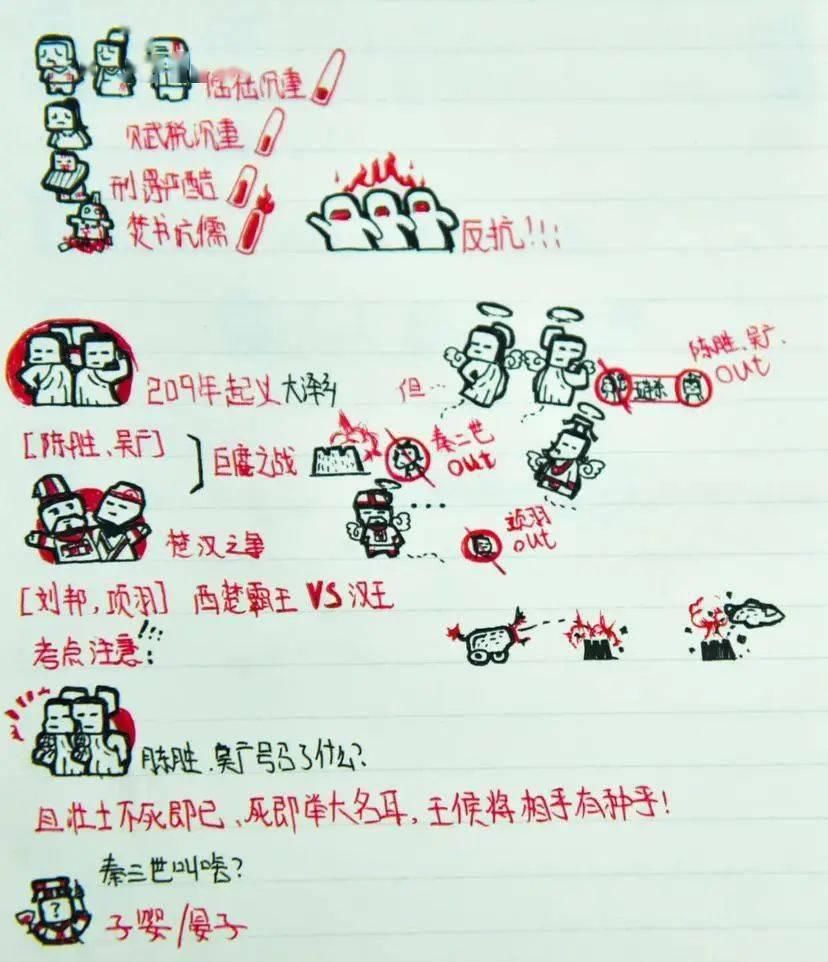 徭役沉重
赋税沉重
刑罚严酷
焚书坑儒
反抗!!!
209年起义大泽乡
但…
陈胜、吴广
out
[陈胜、吴广]
巨鹿之战
秦二世
out
楚汉之争
项羽
out
[刘邦,项羽] 西楚霸王 VS 汉王
考点注意!!!:
陈胜、吴广号召了什么?
且壮士不死即已、死即举大名耳,王候将相乎有种乎!
秦三世叫啥?
?
子婴/晏子